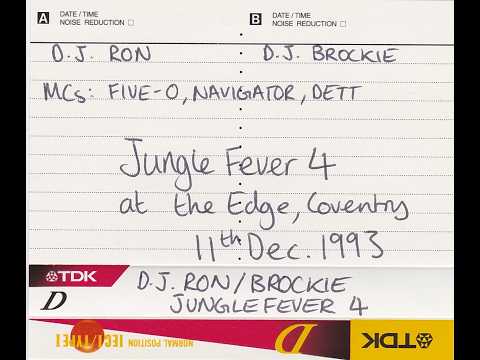 A DATE/TIME
NOISE REDUCTION □
B DATE/TIME
NOISE REDUCTION □
D.J. RON
D.J. BROCKIE
MCs: FIVE-O, NAVIGATOR, DETT
Jungle Fever 4
at the Edge, Coventry
11th Dec. 1993
TDK
D
D.J. RON/BROCKIE
JUNGLE FEVER 4
NORMAL POSITION IEC I/TYPE I
D
TDK